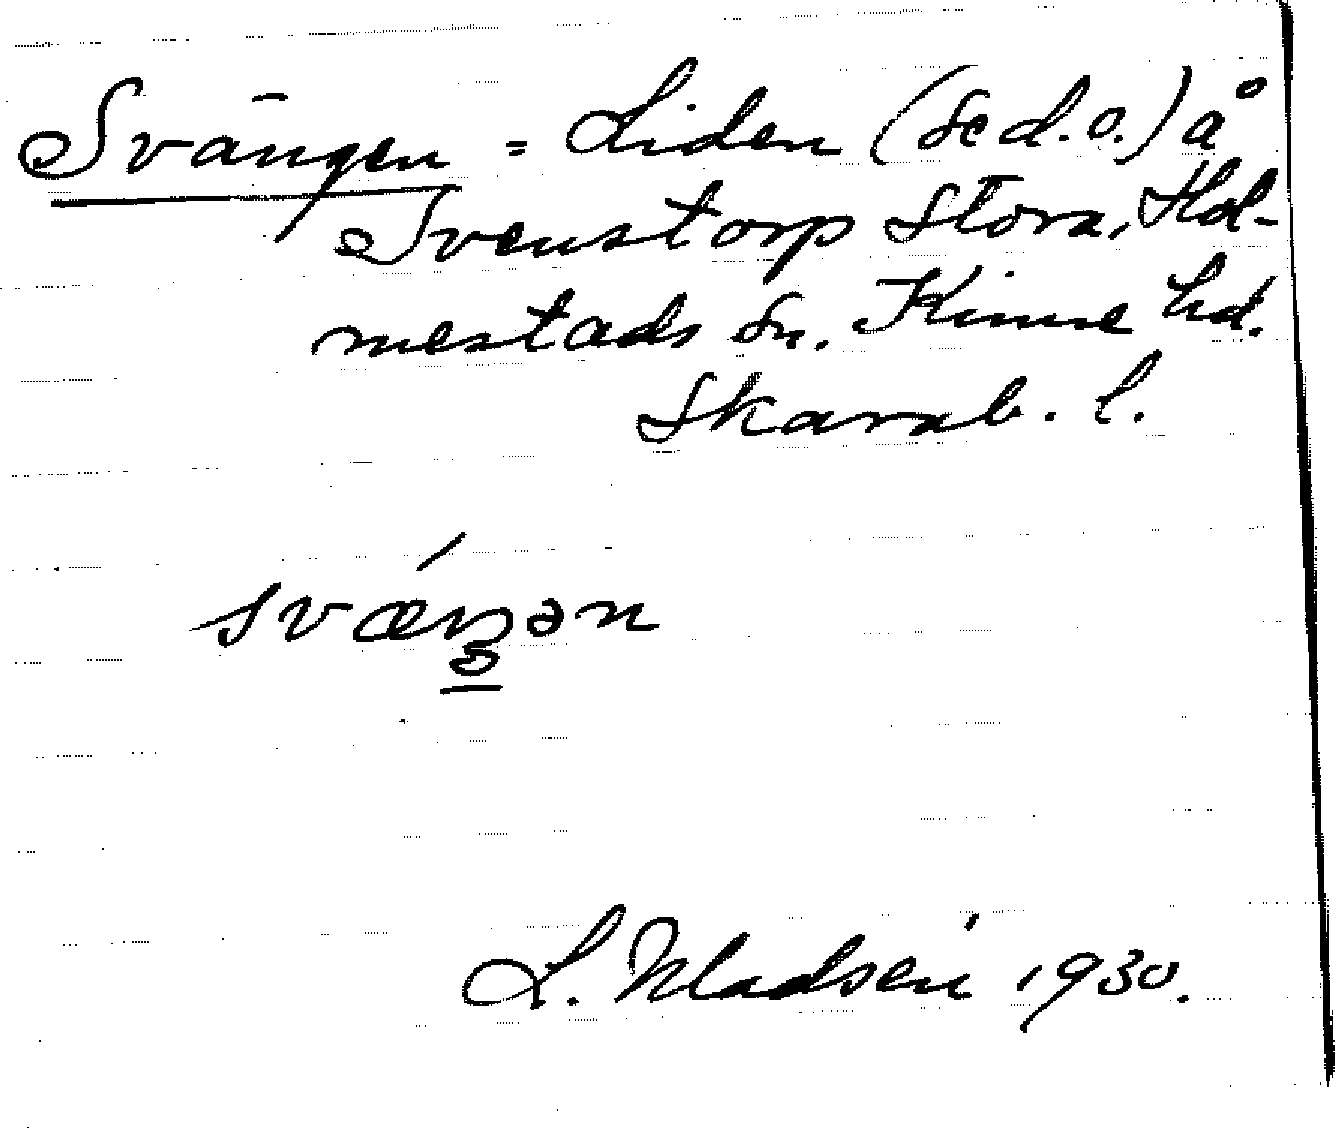 Svängen = Liden (se d. o.) å
Svenstorp Stora, Hol-
mestads sn. Kinne hd.
Skarab. l.
svæŋən
L. Madsén 1930.